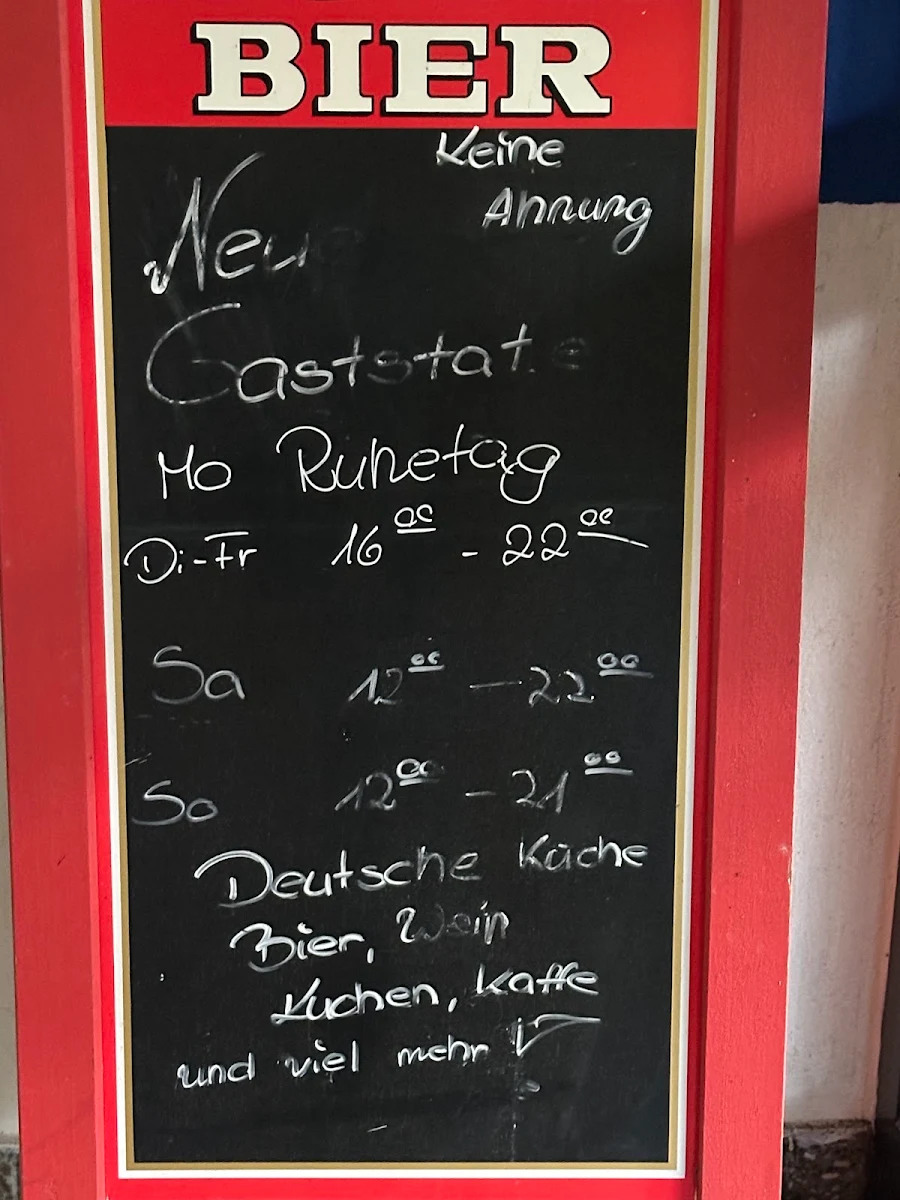 BIER
Keine
Ahnung
Neu
Gaststatte
Mo Ruhetag
Di-Fr 16⁰⁰ - 22⁰⁰
Sa 12⁰⁰ - 22⁰⁰
So 12⁰⁰ - 21⁰⁰
Deutsche Küche
Bier, Wein
Kuchen, Kaffe
und viel mehr